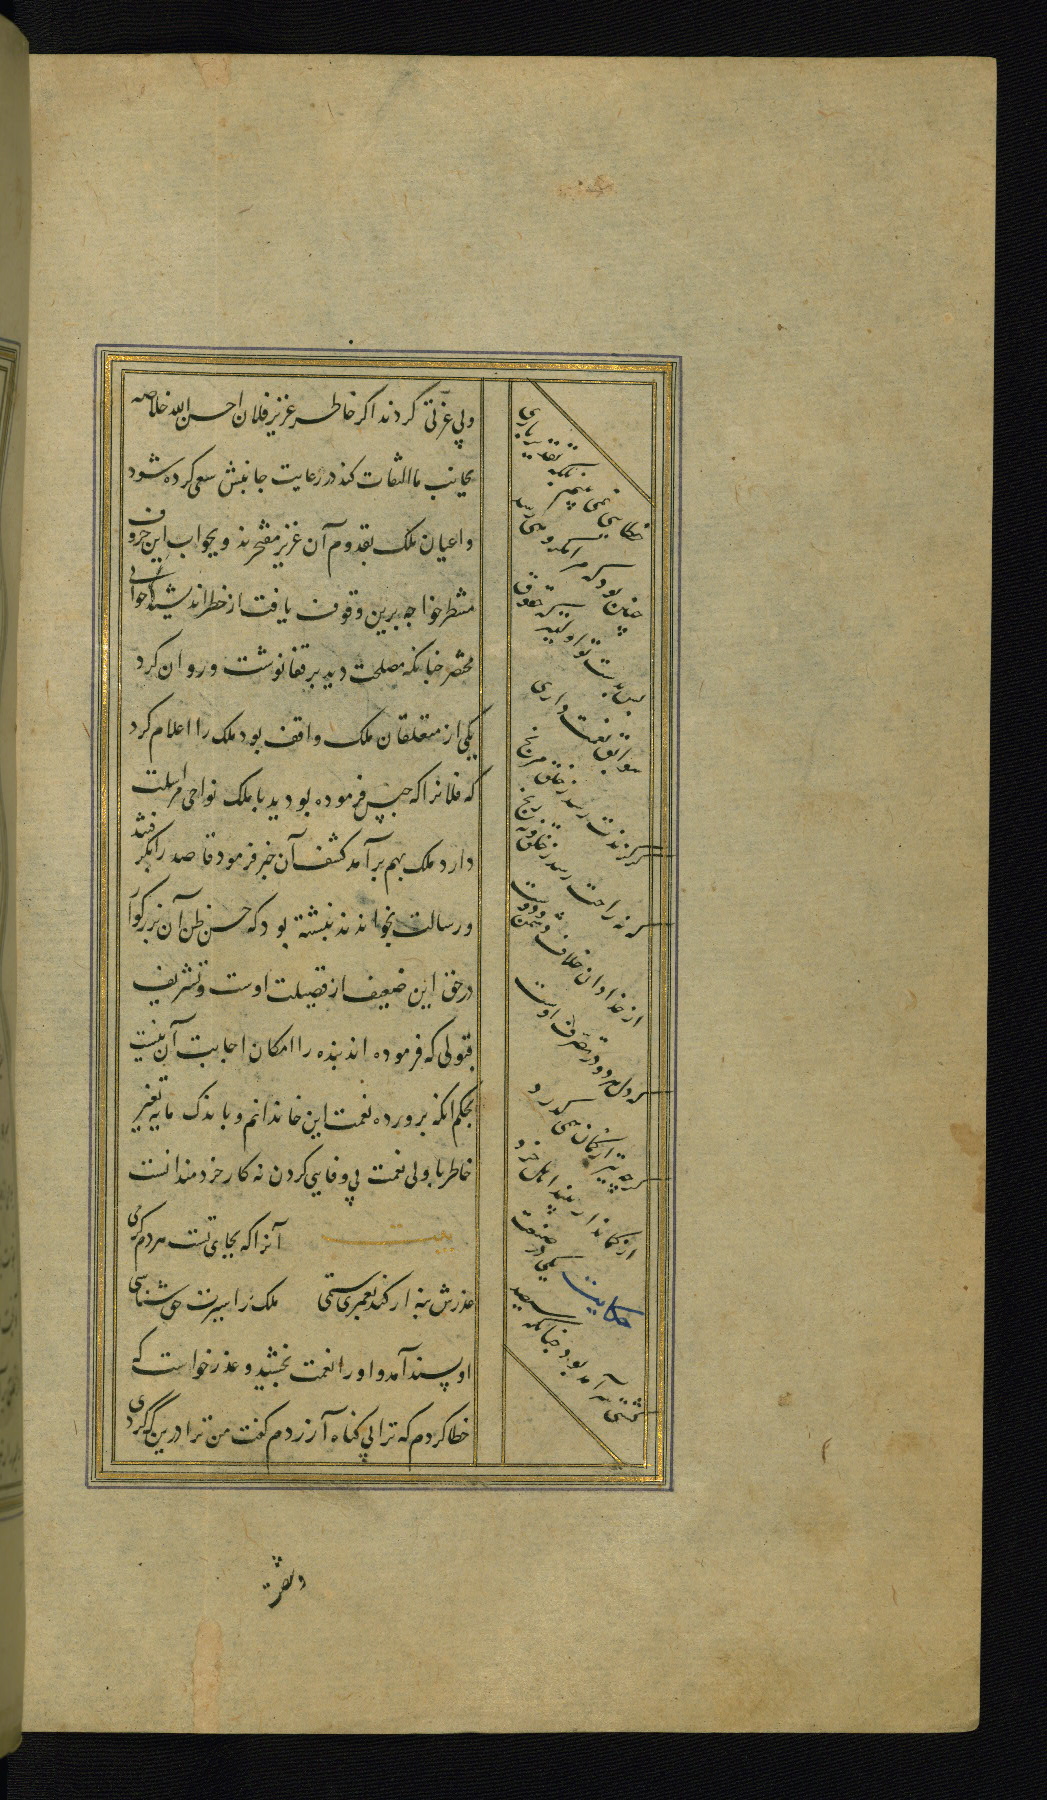 وبی عزتی کردند اکر خاطر عزیز فلان احسن الله خلاصه
بجانب ما التفات کند در رعایت جانبش سعی کرده شود
و اعیان ملک بقدوم آن عزیز مفتخرند و بجواب این حروف
منتظر خواجه برین وقوف یافت از خطر اندیشید جوابی
مختصر چنانکه مصلحت دید بر قفا نوشت و روان کرد
یکی از متعلقان ملک واقف بود ملک را اعلام کرد
که فلانرا که حبس فرموده بودید با ملک نواحی مراسلت
دارد ملک بهم برآمد کشف آن خبر فرمود قاصد را بکرفتند
و رسالت بخواندند نبشته بود که حسن ظن آن بزرکوار
در حق این ضعیف از فضیلت اوست و تشریف
قبولی که فرموده اند بنده را امکان اجابت آن نیست
بحکم انکه پرورده نعمت این خاندانم و باندک مایه تغیر
خاطر با ولی نعمت بی وفایی کردن نه کار خردمندانست
بیت آنرا که بجای تست هردم کرمی
عذرش بنه ار کند بعمری ستمی ملک را سیرت حق شناسی
او پسند آمد و اورا نعمت بخشید و عذر خواست که
خطا کردم که ترا بی کناه آزردم کفت من ترا درین
خطایی نمی بینم بلکه تقدیر باری
چنین بود که مکروهی رسد
پس بدست تو اولیتر که حقوق
سوابق نعمت داری
کر کزندت رسد ز خلق مرنج
که نه راحت رسد ز خلق و نه رنج
از خدا دان خلاف دشمن و دوست
که دل هر دو در تصرف اوست
کرچه تیر از کمان همی کذرد
از کماندار بیند اهل خرد
حکایت یکی در صنعت
کشتی سرآمده بود چنانکه سیصد